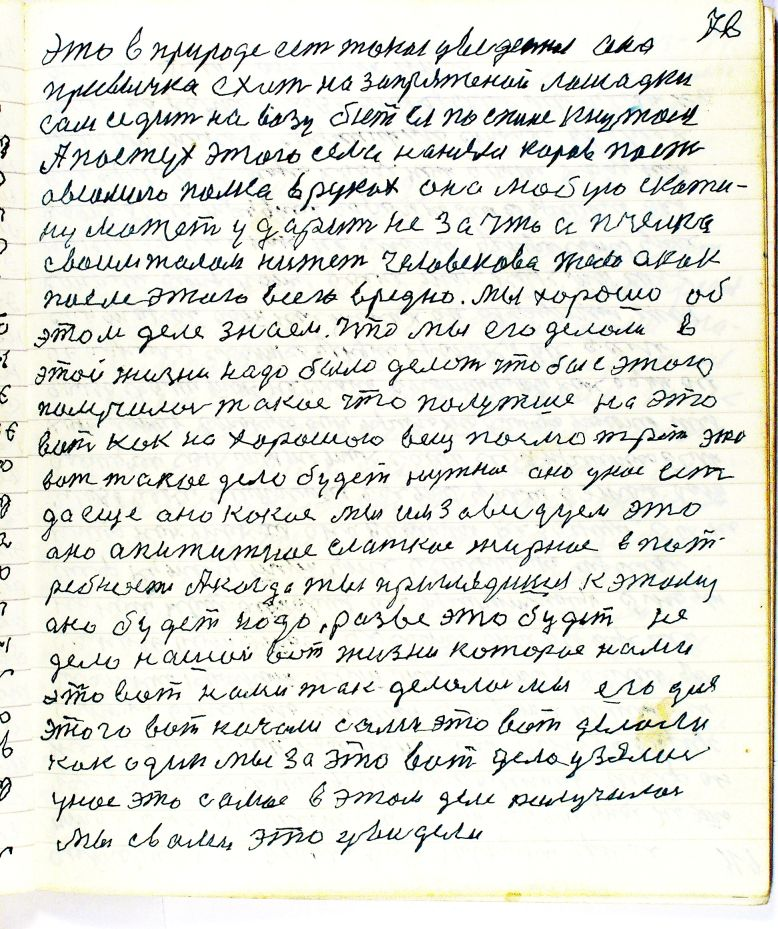 78
это в природе ест токае увидении ано
привычка ехат на запряженой лошадки
сам седит на возу бьет ей по спине кнутом
А постух этого села нанятая коров
палка в руках она любую скоти-
ну может ударит не за что а пчелка
своим жалом человекова тело а как
после этого всего вредно. мы хорошо об
этом деле знаем. что мы его делали в
этой жизни надо было делат что бы с этого
получилос такое что полутше на это
вот как на хорошого вещ посмотрет это
вот такое дело будет нужное оно умое ест
да еще ано какое мы им завидуем это
ано апититное слаткое жирное в пот-
ребности А когда ты приглядишся к этому
ано будет чодо, разве это будет не
дело нашой вот жизни которое нами
это вот нами так делалос мы его для
этого вот начали сами это вот делали
как один мы за это вот дело узялис
умое это самое в этом деле получилос
мы с вами это увидели